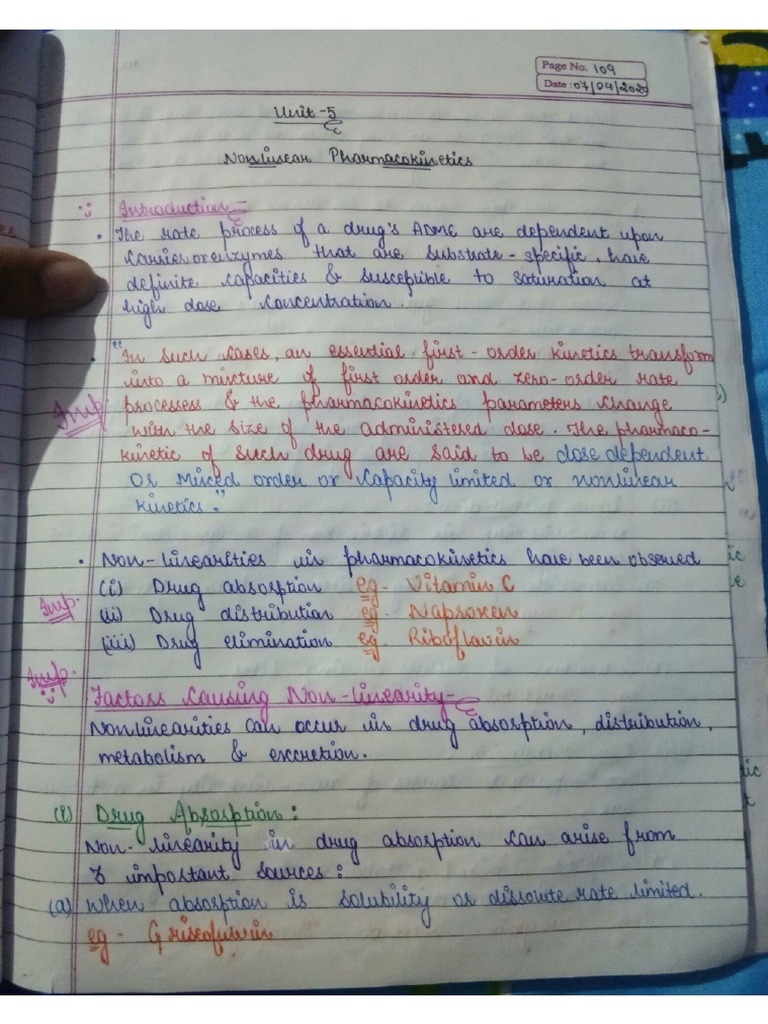 Page No. 109
Date : 07/04/2020
Unit-5
Nonlinear Pharmacokinetics
Introduction -
• The rate process of a drug's ADME are dependent upon
carrier or enzymes that are substrate-specific, have
definite capacities & susceptible to saturation at
high dose concentration.
• "In such cases, an essential first-order kinetics transform
Imp. into a mixture of first order and zero-order rate
processess & the pharmacokinetics parameters change
with the size of the administered dose. The pharmaco-
kinetic of such drug are said to be dose dependent
or mixed order or capacity limited or nonlinear
kinetics."
• Non-linearities in pharmacokinetics have been observed
(i) Drug absorption eg- Vitamin C
Imp. (ii) Drug distribution eg- Naproxen
(iii) Drug elimination eg- Riboflavin
Imp. Factors Causing Non-linearity-
Nonlinearities can occur in drug absorption, distribution,
metabolism & excretion.
(i) Drug Absorption :
Non-linearity in drug absorption can arise from
3 important sources :
(a) When absorption is solubility or dissolute rate limited.
eg - Griseofulvin